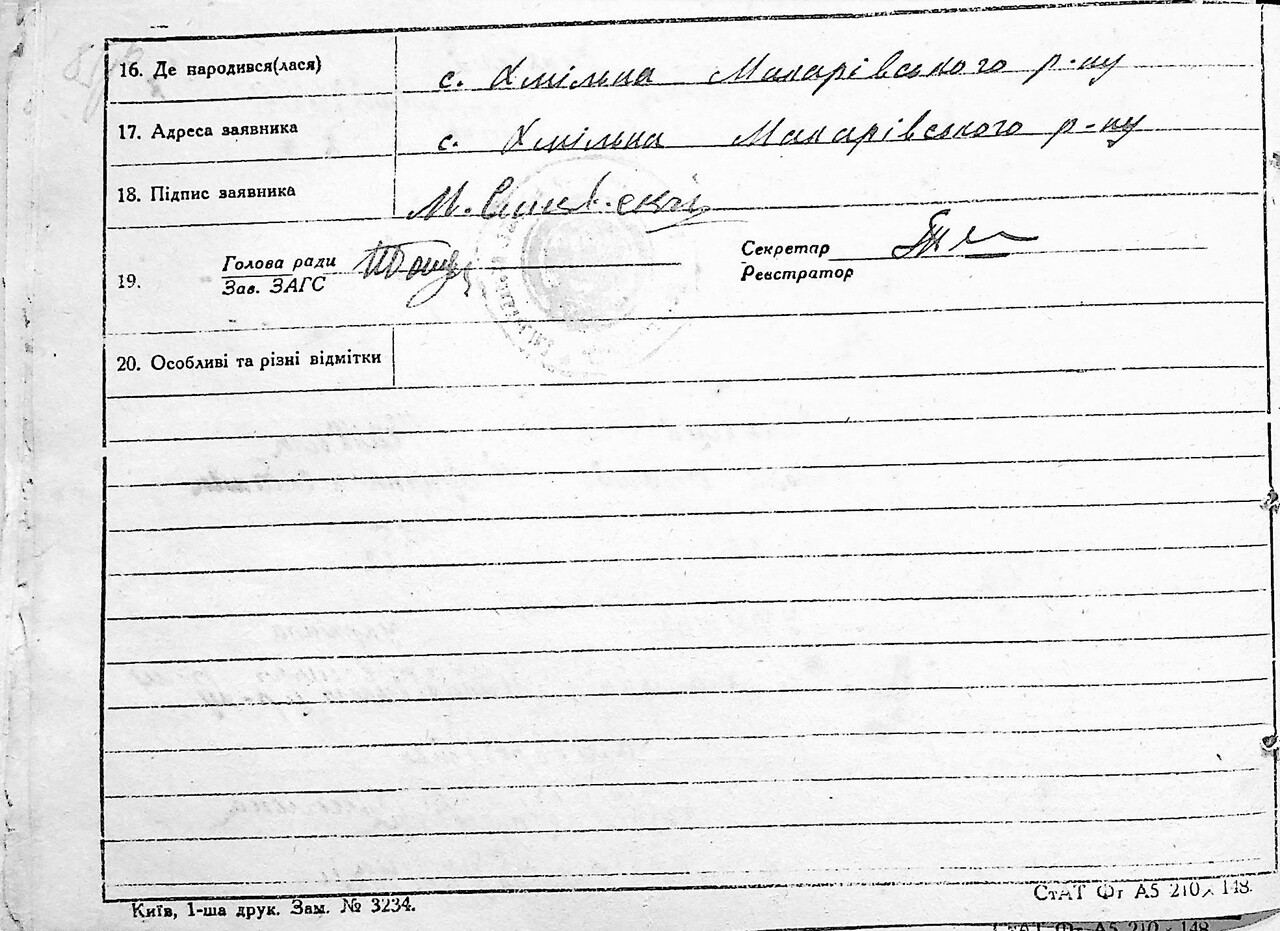 16. Де народився(лася) с. Хмільна Макарівського р-ну
17. Адреса заявника с. Хмільна Макарівського р-ну
18. Підпис заявника М.
19. Голова ради
Зав. ЗАГС
Секретар
Реєстратор
20. Особливі та різні відмітки
Київ, 1-ша друк. Зам. № 3234.
СтАТ Фт А5 210 х 148.
СтАТ Фт А5 210 х 148